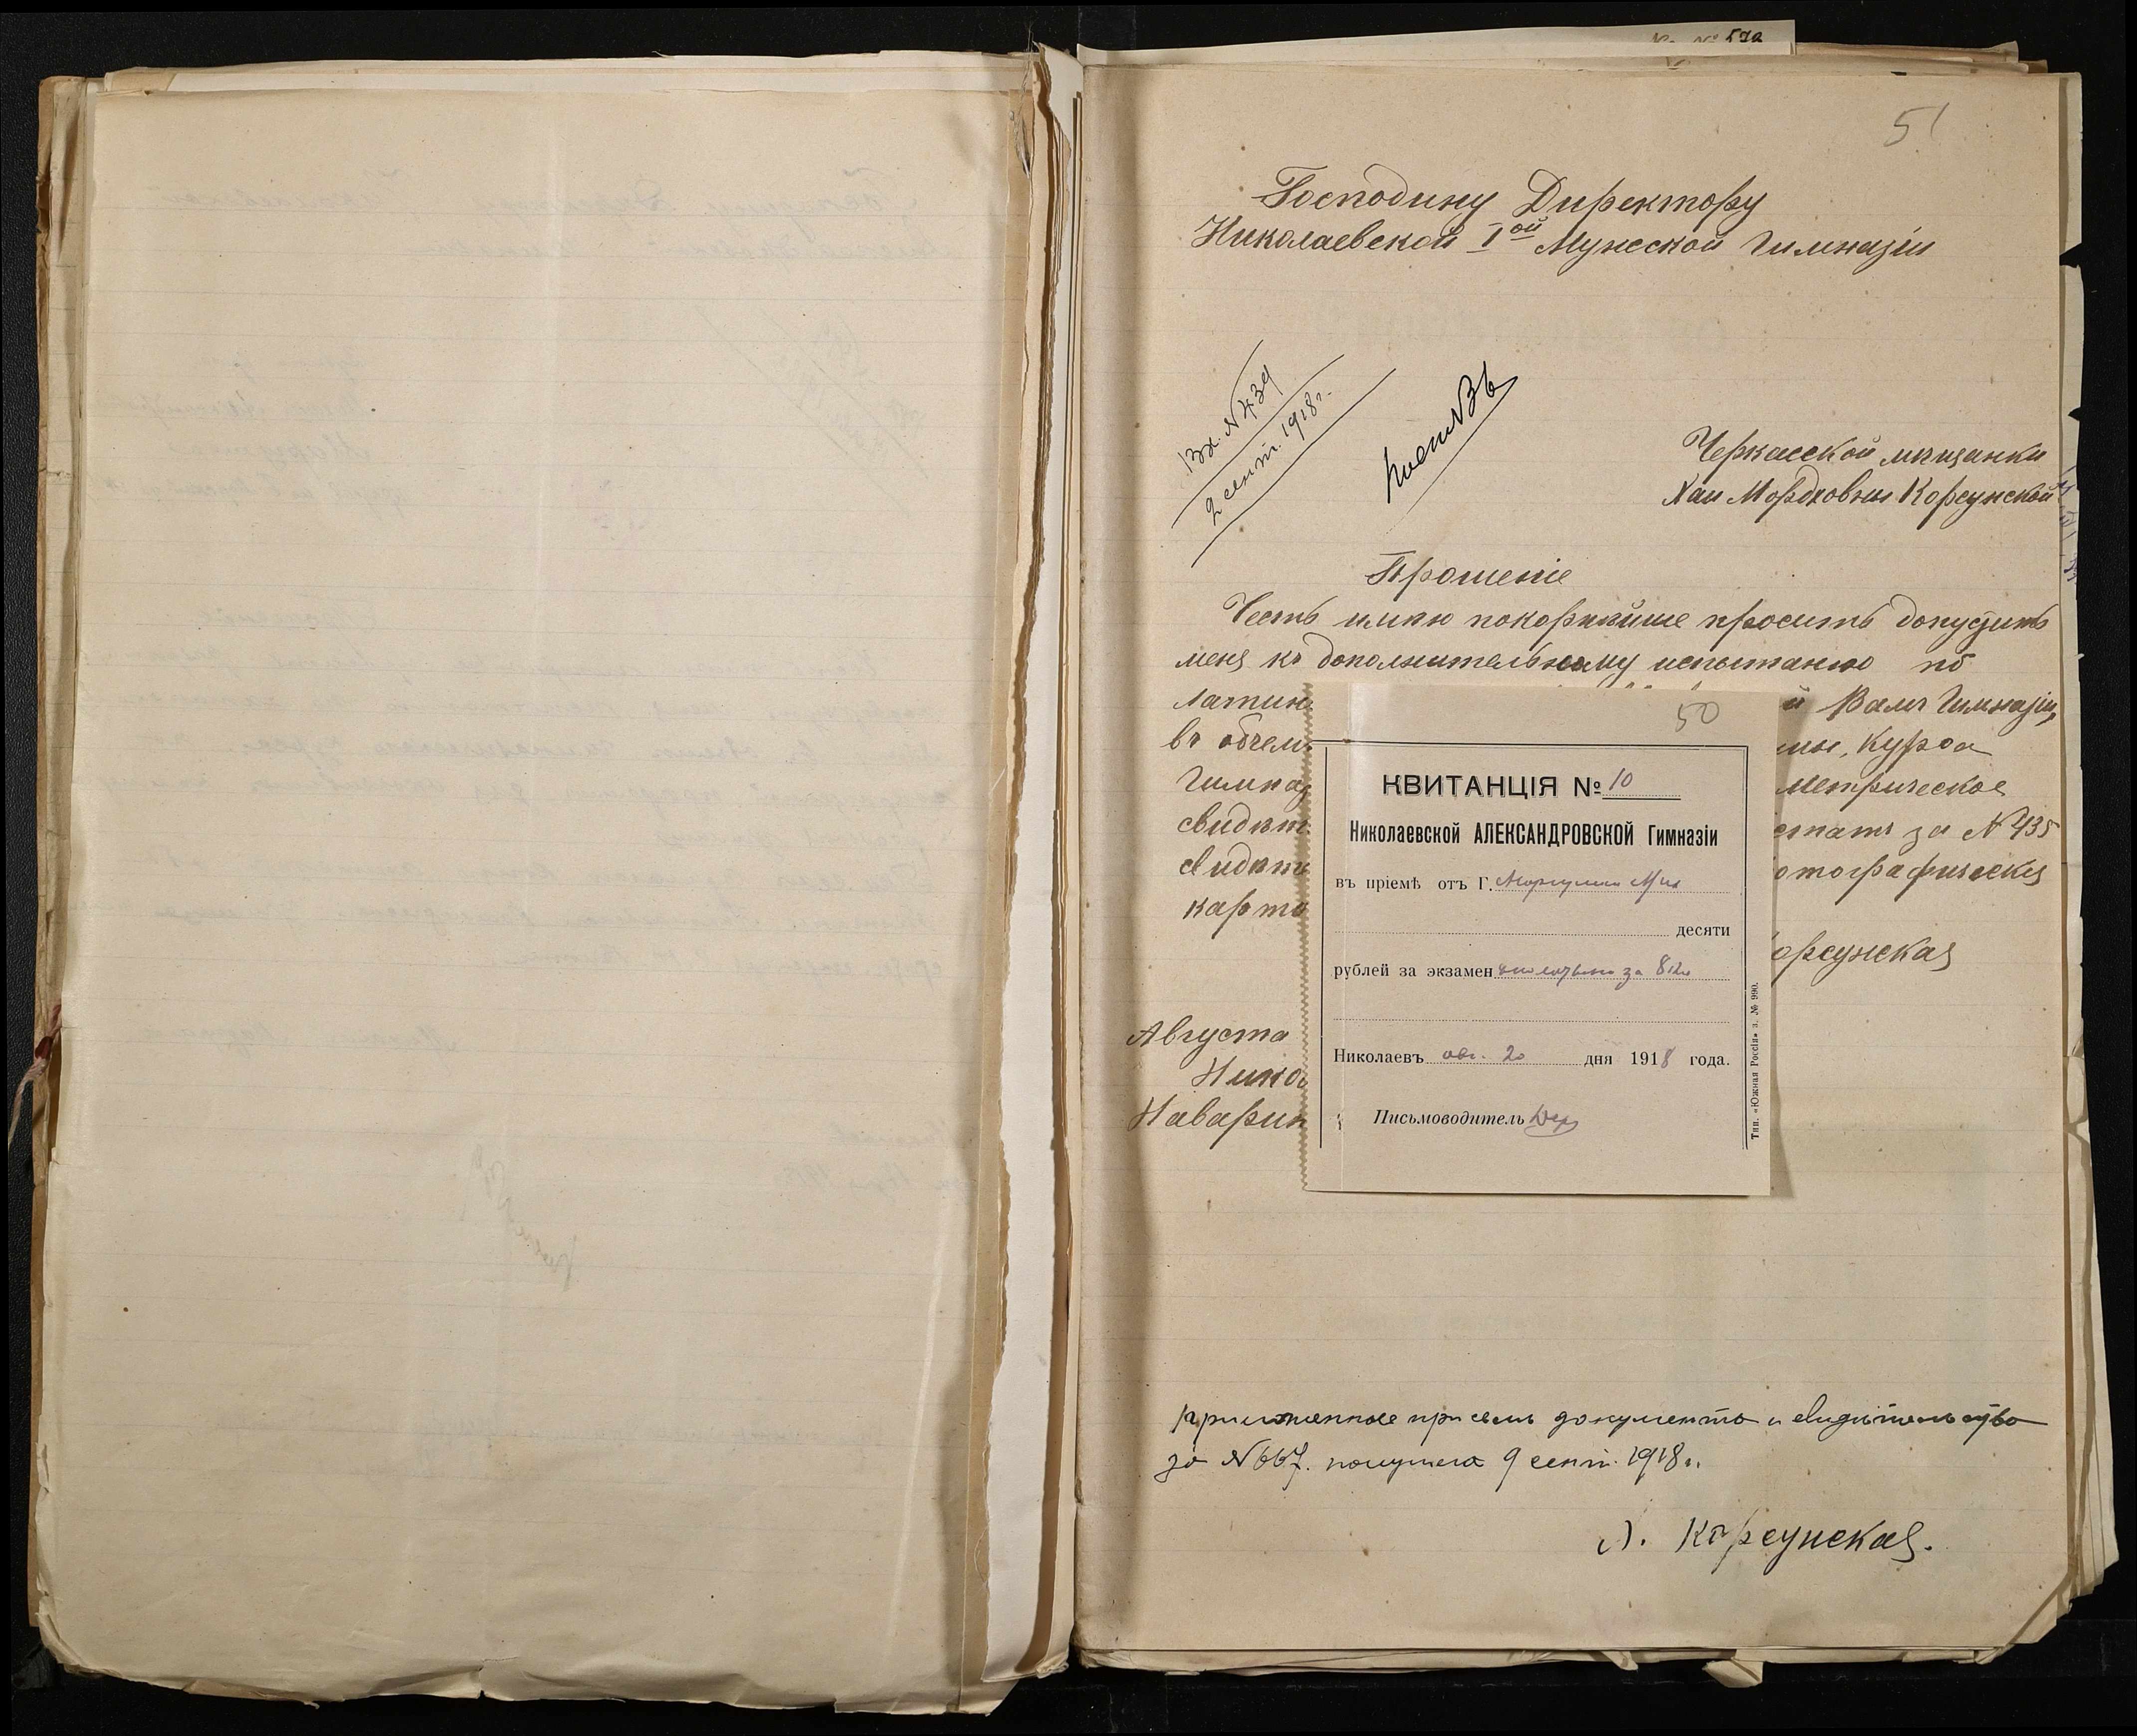 51
Господину Директору
Николаевской Iой Мужской Гимназіи
Вх. №439
2 сент. 1918 г.
Черкасской мѣщанки
Хаи Мордховны Корсунской
Прошеніе
Честь имѣю покорнѣйше просить допустить
меня къ дополнительному испытанію по
латин й Вамъ Гимназіи,
въ объем курса
Гимназ метрическое
свидѣт за №435
свидѣте отографическія
карто
орсунская
Августа
Нико
Наварин
50
КВИТАНЦІЯ № 10
Николаевской АЛЕКСАНДРОВСКОЙ Гимназіи
въ пріемѣ отъ Г.
десяти
рублей за экзамен за 8
Николаевъ авг. 20 дня 1918 года.
Письмоводитель
Тип. «Южная Россія» з. № 990.
Приложенное при семъ документы и свидѣтельство
за №667. получила 9 сент. 1918 г.
Х. Корсунская.